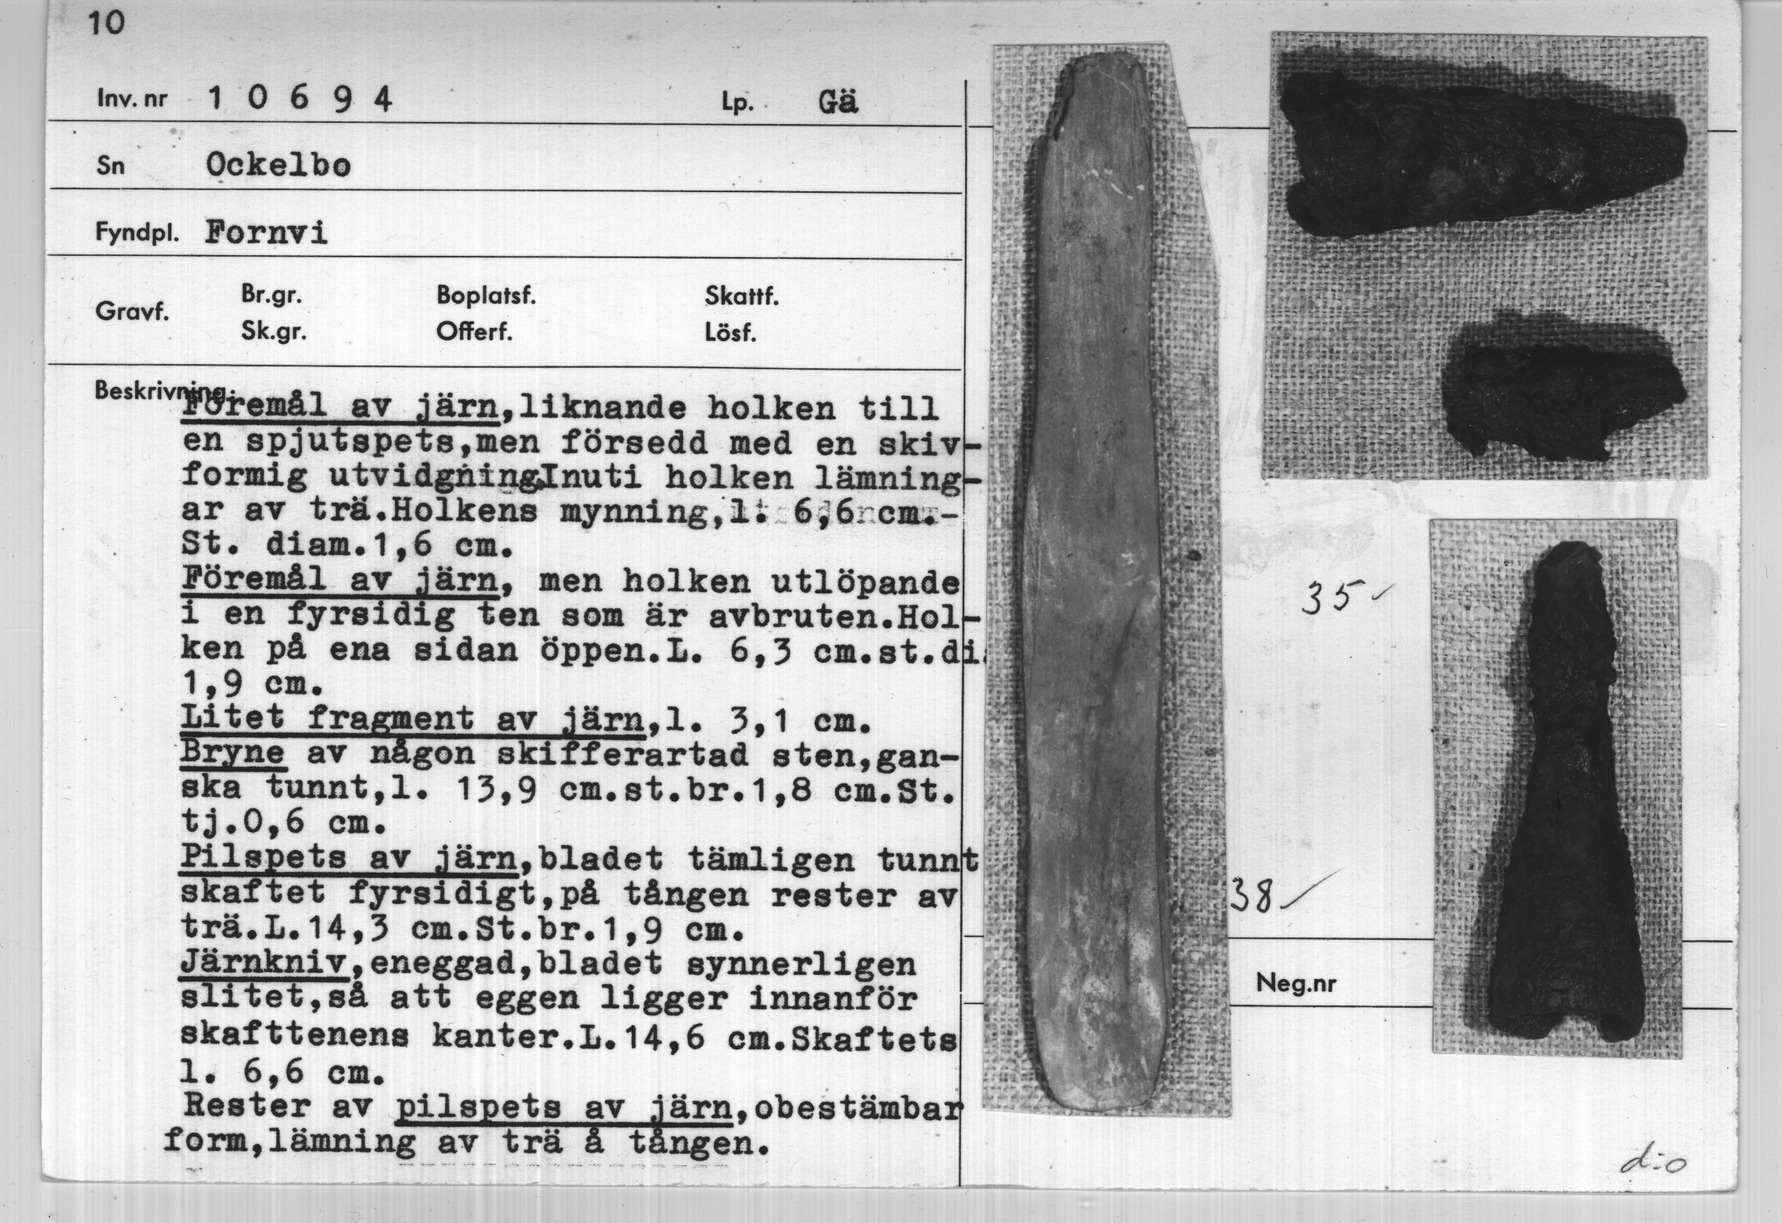 10
Inv. nr 1 0 6 9 4 Lp. Gä
Sn Ockelbo
Fyndpl. Fornvi
Gravf. Br.gr. Boplatsf. Skattf.
Sk.gr. Offerf. Lösf.
Beskrivning:
Föremål av järn,liknande holken till
en spjutspets,men försedd med en skiv-
formig utvidgning.Inuti holken lämning-
ar av trä.Holkens mynning,l: 6,6 cm.-
St. diam.1,6 cm.
Föremål av järn, men holken utlöpande
i en fyrsidig ten som är avbruten.Hol-
ken på ena sidan öppen.L. 6,3 cm.st.di.
1,9 cm.
Litet fragment av järn,l. 3,1 cm.
Bryne av någon skifferartad sten,gan-
ska tunnt,l. 13,9 cm.st.br.1,8 cm.St.
tj.0,6 cm.
Pilspets av järn,bladet tämligen tunnt
skaftet fyrsidigt,på tången rester av
trä.L.14,3 cm.St.br.1,9 cm.
Järnkniv,eneggad,bladet synnerligen
slitet,så att eggen ligger innanför
skafttenens kanter.L.14,6 cm.Skaftets
l. 6,6 cm.
Rester av pilspets av järn,obestämbar
form,lämning av trä å tången.
35
38
Neg.nr
d:o